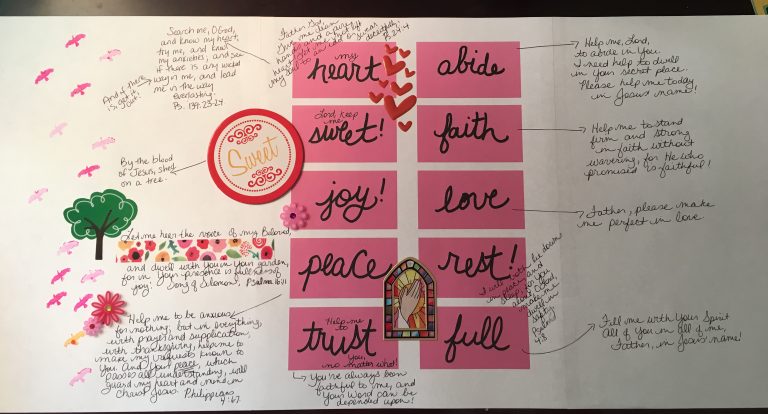 Search me, O God,
and know my heart,
try me, and know
my anxieties; and see
if there is any wicked
way in me, and lead
me in the way
everlasting.
Ps. 139:23-24
And if there
is, get it
out
Father God,
Give me clean
hands and a pure
heart
my soul to an idol or swear
deceitfully.
24:4
my
heart
abide
Help me, Lord,
to abide in You.
I need help to dwell
in Your secret place.
Please help me today,
in Jesus' name!
Lord, keep
me
sweet!
Sweet
By the blood
of Jesus, shed
on a tree.
faith
Help me to stand
firm and strong
in faith without
wavering, for He who
promised is faithful!
joy!
Let me hear the voice of my Beloved,
and dwell with You in Your garden,
for in Your presence is fullness of
joy. Song of Solomon, Psalm 16:11
love
Father, please make
me perfect in love.
peace
Help me to be anxious
for nothing, but in everything,
with prayer and supplication,
with thanksgiving, help me to
make my requests known to
You. And Your peace, which
passes all understanding, will
guard my heart and mind in
Christ Jesus. Philippians
4:6-7
rest!
I will both lie down
in peace and
sleep, for You
alone, O Lord,
make me
dwell in
safety.
Psalm
4:8
Help me
to
trust
You,
no matter what!
You've always been
faithful to me, and
Your Word can be
depended upon!
full
Fill me with Your Spirit
All of You in all of me,
Father, in Jesus' name!